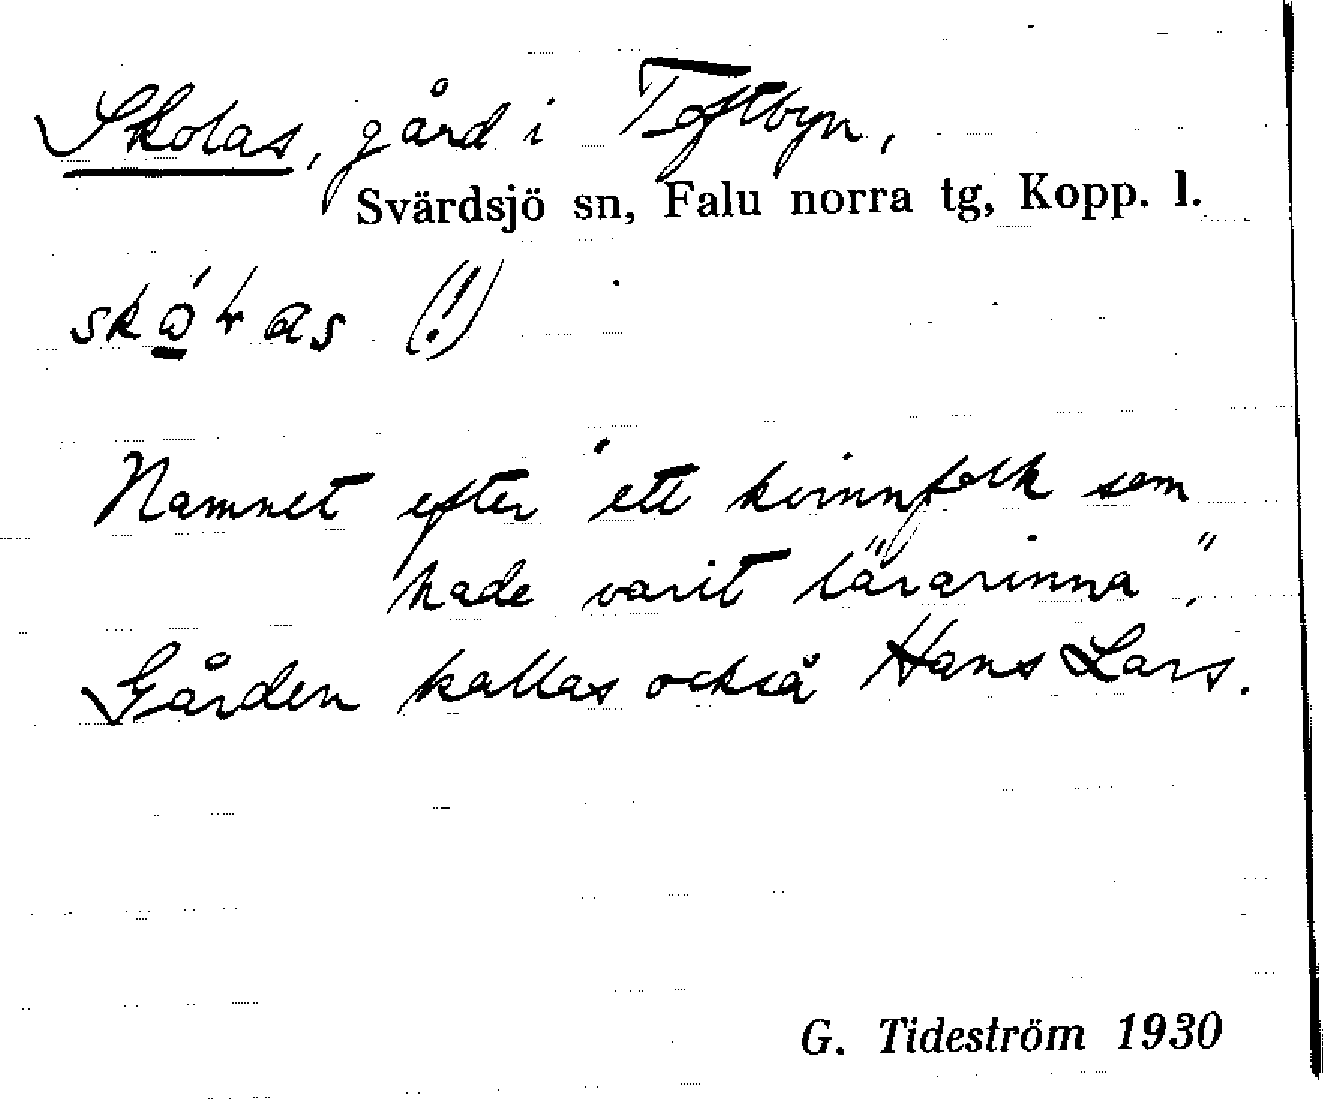 Skolas, gård i Toftbyn,
Svärdsjö sn, Falu norra tg, Kopp. l.
(!)
Namnet efter "ett kvinnfolk som
hade varit lärarinna".
Gården kallas också Hans Lars.
G. Tideström 1930